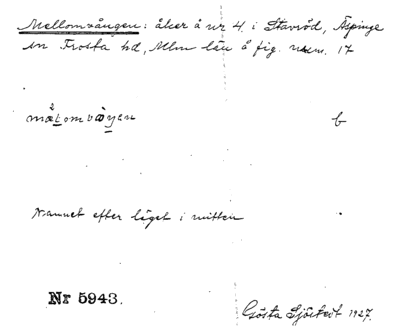 Mellomvången: åker å nr 4 i Stavröd, Äspinge
sn Frosta hd, Mlm län å fig. num. 17
b
Namnet efter läget i mitten
Nr 5943.
Gösta Sjöstedt 1927.